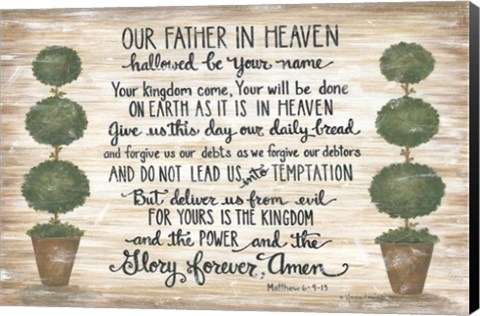 OUR FATHER IN HEAVEN
hallowed be Your name
Your kingdom come, Your will be done
ON EARTH AS IT IS IN HEAVEN
Give us this day our daily bread
and forgive us our debts as we forgive our debtors
AND DO NOT LEAD US into TEMPTATION
But deliver us from evil
FOR YOURS IS THE KINGDOM
and the POWER and the
Glory forever, Amen
Matthew 6:9-13